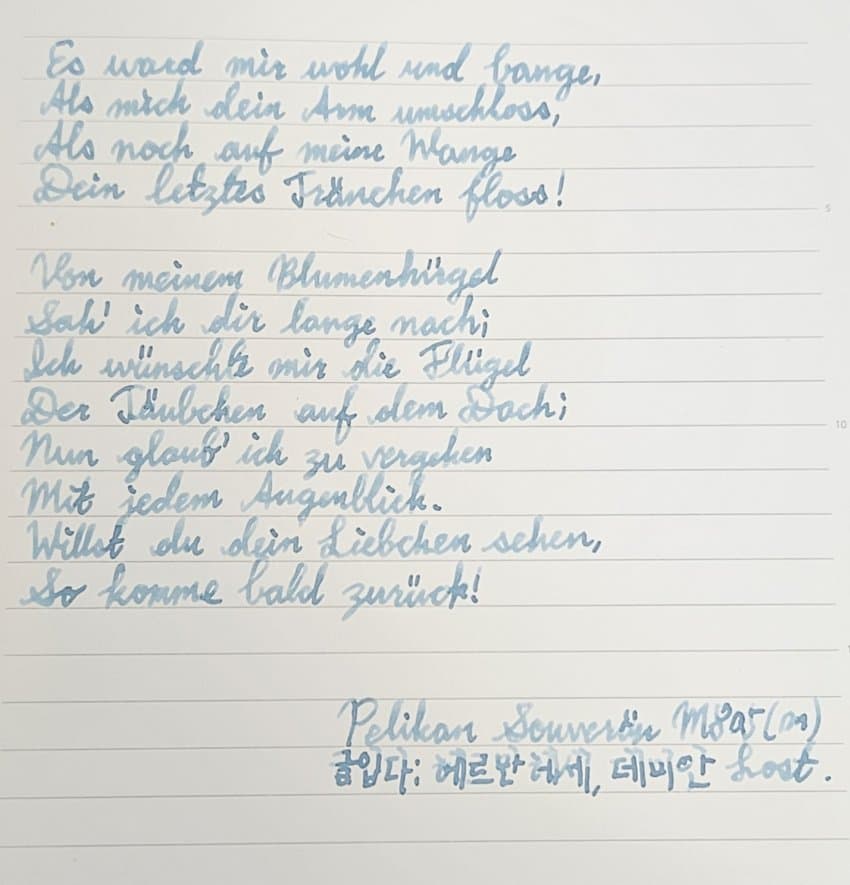 Es ward mir wohl und bange,
Als mich dein Arm umschloss,
Als noch auf meine Wange
Dein letztes Tränchen floss!
5
Von meinem Blumenhügel
Sah' ich dir lange nach;
Ich wünscht mir die Flügel
Der Täubchen auf dem Dach;
10
Nun glaub' ich zu vergehen
Mit jedem Augenblick.
Willst du dein Liebchen sehen,
So komme bald zurück!
Pelikan Souverän (m)
헤르만 헤세, 데미안 host.